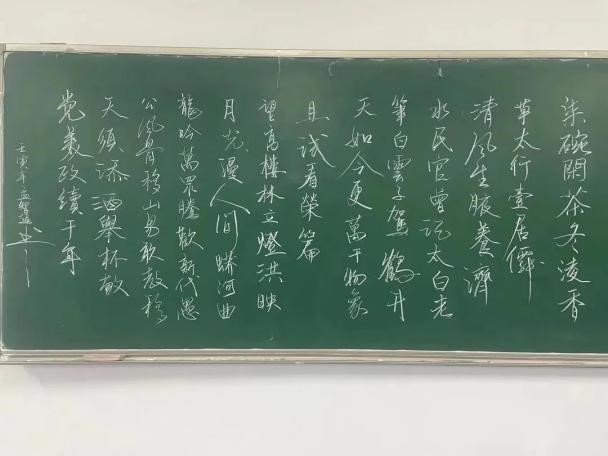 柒碗閑茶冬凌香
草太行壹居僻
清風生服養濟
水民官曾記太白老
筆白雲子駕鶴升
天如今更萬千物象
且試看榮篇
望高樓林立燈洪映
月光漫人間 蟒河曲
龍吟萬眾騰歡新代愚
公風骨移山易敢教穆
天須添酒舉杯敬
党義政續千年
壬寅年孟